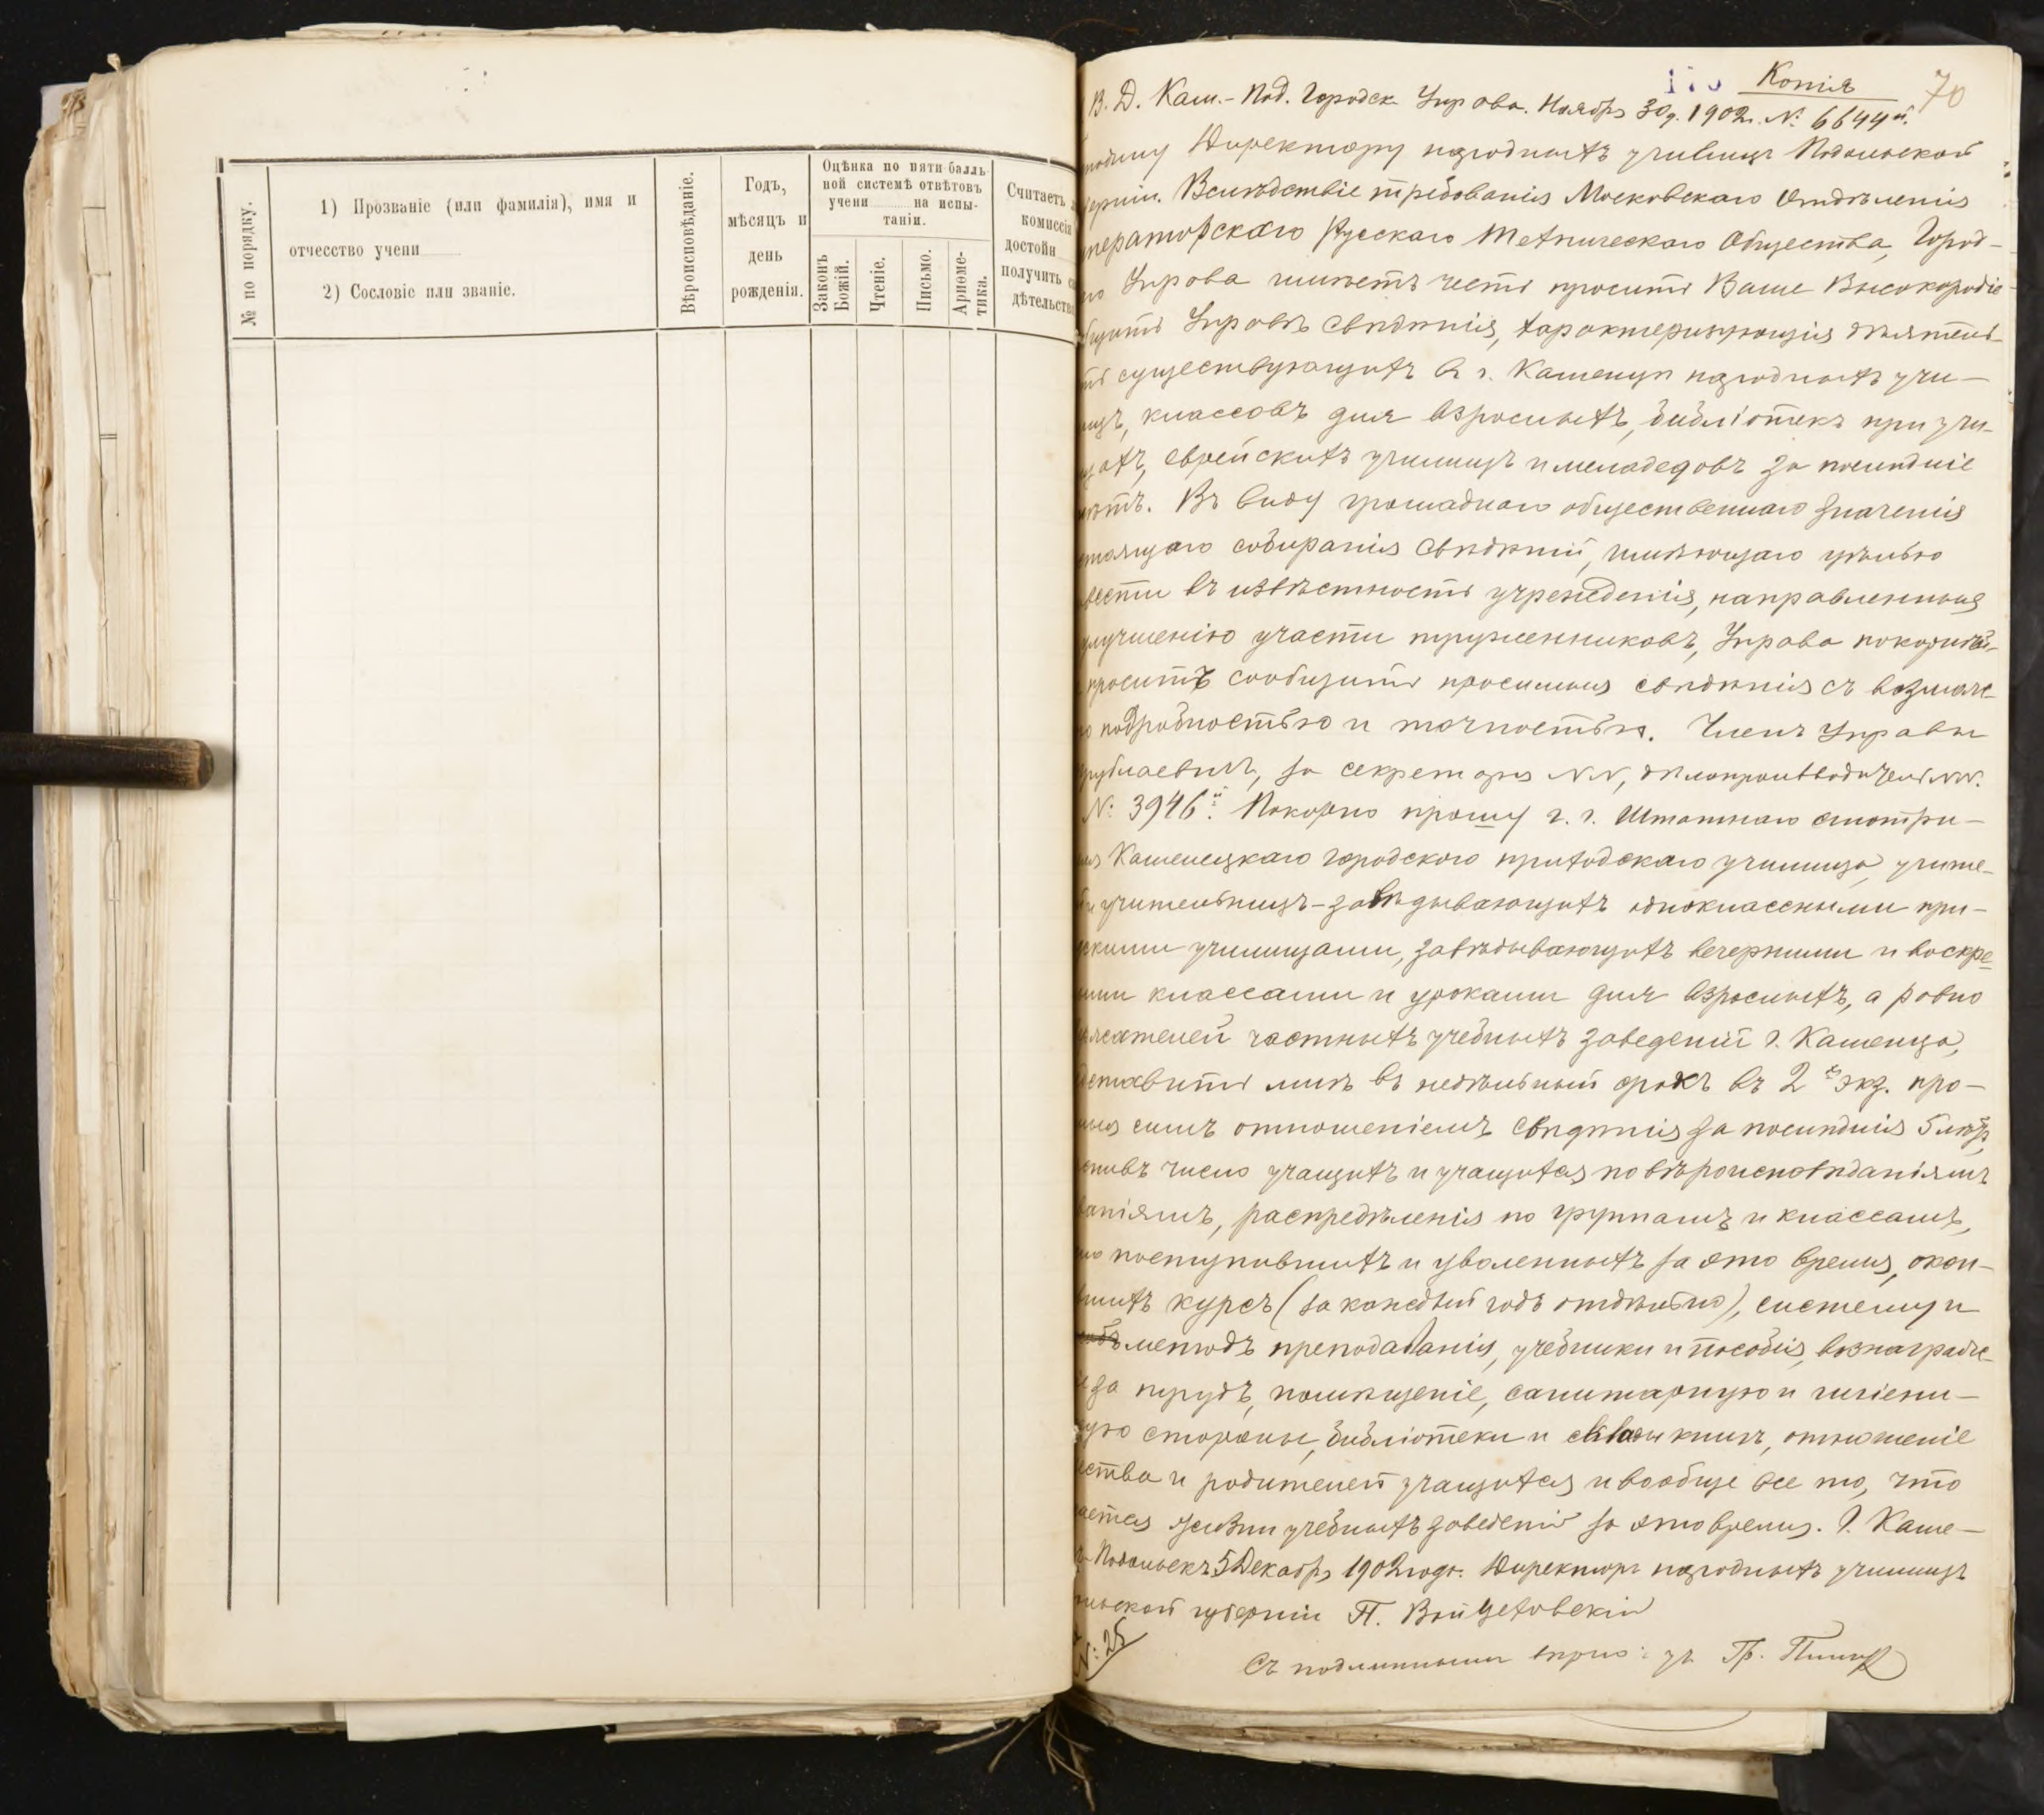 № по порядку.
1) Прозваніе (или фамилія), имя и
отчесство учени
2) Сословіе или званіе.
Вѣроисповѣданіе.
Годъ,
мѣсяцъ и
день
рожденія.
Оцѣнка по пяти-балль-
ной системѣ отвѣтовъ
учени на испы-
таніи.
Законъ
Божій.
Чтеніе.
Письмо.
Ариѳме-
тика.
Считаетъ
комиссія
достойн
получить
дѣтельство
Копія
70
В. Д. Кам.-Под. Городск. Управа. Ноября 30 д. 1902 г. № 6644й.
Директору народныхъ училищъ Подольской
Вслѣдствіе требованія Московскаго Отдѣленія
ператорскаго Русскаго Техническаго Общества, Город-
Управа имѣетъ честь просить Ваше Высокородіе
общить Управѣ свѣдѣнія, характеризующія дѣятель-
ть существующихъ въ г. Каменцѣ народныхъ учи-
ищъ, классовъ для взрослыхъ, библіотекъ при учи-
щахъ, еврейскихъ училищъ и меламедовъ за послѣдніе
лѣтъ. Въ виду громаднаго общественнаго значенія
стоящаго собиранія свѣдѣній, имѣющаго цѣлью
вести въ извѣстность учрежденія, направленныя
улучшенію участи труженниковъ, Управа покорнѣй-
проситъ сообщить просимыя свѣдѣнія съ возможн-
ю подробностью и точностью. Членъ Управы
за секретаря NN, дѣлопроизводитель NN.
№ 3946й. Покорно прошу г. г. Штатнаго смотри-
ля Каменецкаго городского приходскаго училища, учите-
й и учительницъ-завѣдывающихъ одноклассными при-
скими училищами, завѣдывающихъ вечерними и воскре-
ными классами и уроками для взрослыхъ, а равно
держателей частныхъ учебныхъ заведеній г. Каменца,
доставить мнѣ въ недѣльный срокъ въ 2хъ экз. про-
мыя симъ отношеніемъ свѣдѣнія за послѣднія 5 лѣтъ,
число учащихъ и учащихся по вѣроисповѣданіямъ
ваніямъ, распредѣленія по группамъ и классамъ,
ло поступившихъ и уволенныхъ за это время, окон-
вшихъ курсъ (за каждый годъ отдѣльно), систему и
методъ преподаванія, учебники и пособія, вознагражде-
е за трудъ, помѣщеніе, санитарную и гигіени-
ую стороны, библіотеки и склады книгъ, отношеніе
ества и родителей учащихся и вообще все то, что
ается жизни учебныхъ заведеній за это время. Г. Каме-
ц-Подольскъ 5 Декабря 1902 года. Директоръ народныхъ училищъ
ольской губерніи П. Войцеховскій
№: 25
Съ подлиннымъ вѣрно: